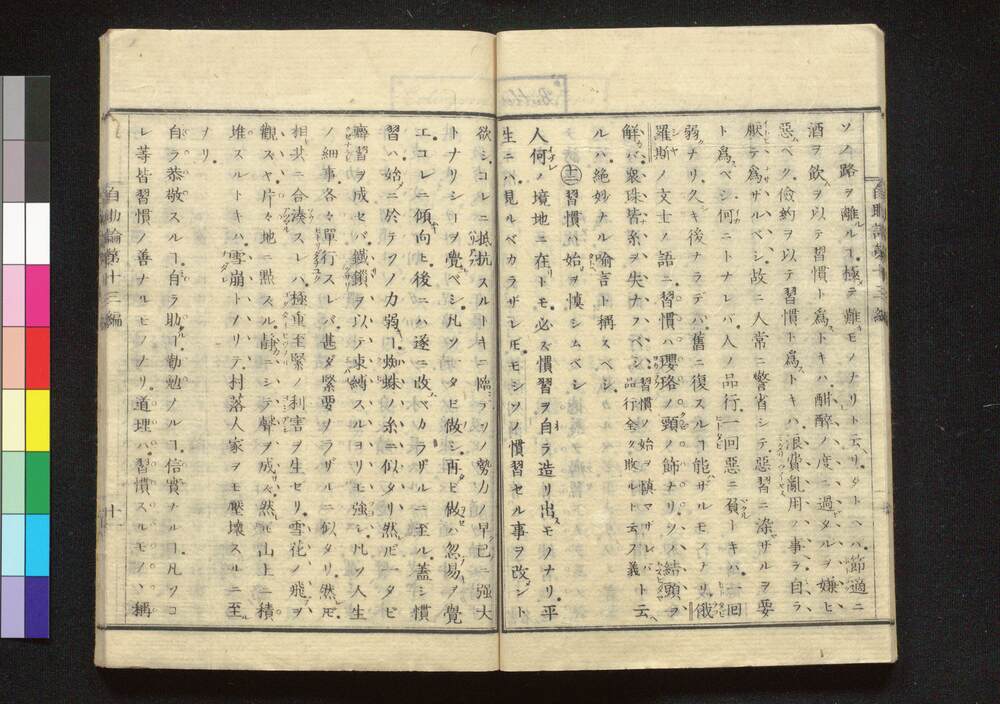 ソノ路ヲ離ルヿ極テ難キモノナリト云ヘリ。タトヘバ節適ニ
酒ヲ飲ヲ以テ習慣ト為ストキハ酣醉ノ度ニ過タルヲ嫌ヒ
惡ベク儉約ヲ以テ習慣ト為ストキハ浪費亂用ノ事ヲ自ラ
厭テ為ザルベシ故ニ人常ニ警省シテ惡習ニ染ザルヲ要
ト為ベシ何ニトナレバ人ノ品行一回惡ニ負トキハ一回
弱ナリ久キ後ナラデハ舊ニ復スルヿ能ザルモノナリ俄
羅斯ノ文士ノ語ニ習慣ハ瓔珞ノ頭ノ飾ナリソノ結頭ヲ
鮮バ衆珠皆糸ヲ失ナフベシ習慣ノ始ヲ慎マザレバ品行全ク敗ルト云フ義ト云
ルハ絶妙ナル喩言ト稱スベシ
十三習慣ハ始ヲ慎シムベシ
人何ノ境地ニ在トモ必ズ慣習ヲ自ラ造リ出スモノナリ平
生ニハ見ルベカラザレ𪜈モシソノ慣習セル事ヲ改メント
欲シコレニ抵抗スルトキニ臨ミソノ勢力ノ早已ニ強大
トナリシヿヲ覺ベシ凡ソ一タビ做シ再ビ做バ忽易ヲ覺
エコレニ傾向ヒ後ニハ遂ニ改ベカラザルニ至ル蓋シ慣
習ハ始メニ於テソノ力弱キヿ蜘蛛ノ糸ニ似タリ然𪜈一タビ
齊習ヲ成セバ鐵鎖ヲ以テ束縛スルヨリモ強シ凡ソ人生
ノ細事各々單行スレバ甚ダ緊要ナラザルニ似タリ然𪜈
相共ニ合湊スレバ極重至緊ノ利害ヲ生セリ雪花ノ飛ヲ
觀ズヤ片々地ニ點スル靜ニシテ聲ヲ成ズ然𪜈山上ニ積
堆スルトキハ雪崩トナリテ村落人家ヲモ壓壞スルニ至
ヲリ
自ラ恭敬スルヿ自ラ助クルヿ勤勉ノルヿ信實ナルヿ凡ソコ
レ等皆習慣ノ善ナルモノナリ道理ハ習慣スルモノト稱
自助論第十三編
十一
自助論第十三編